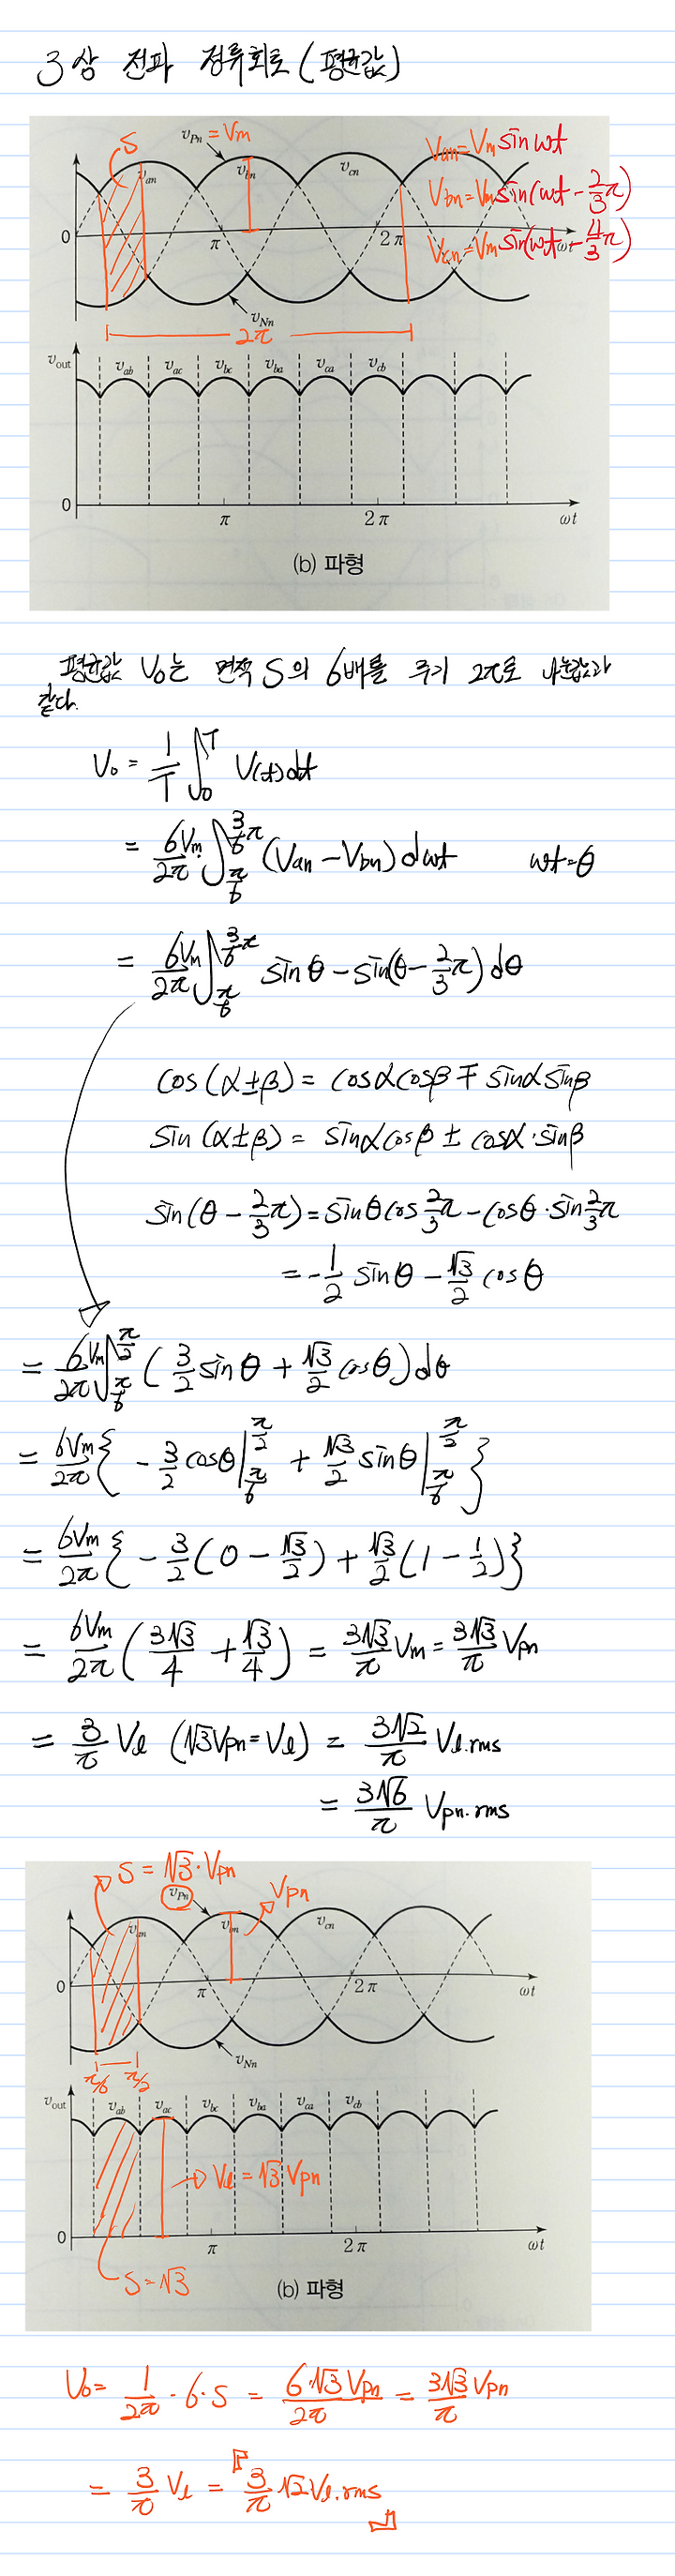 3상 전파 정류회로 (평균값)
S
v_Pn = Vm
v_an
v_bn
v_cn
Van = Vm sin wt
Vbn = Vm sin(wt - 2/3 π)
Vcn = Vm sin(wt - 4/3 π)
0
π
2π
ωt
v_Nn
2π
v_out
v_ab v_ac v_bc v_ba v_ca v_cb
0
π
2π
ωt
(b) 파형
평균값 Vo는 면적 S의 6배를 주기 2π로 나눈값과
같다.
Vo = 1/T ∫_0^T V(t)dt
= 6Vm/2π ∫_{π/6}^{3/6 π} (Van - Vbn) dwt wt = θ
= 6Vm/2π ∫_{π/6}^{3/6 π} sinθ - sin(θ - 2/3 π) dθ
cos(α±β) = cosα cosβ ∓ sinα sinβ
sin(α±β) = sinα cosβ ± cosα · sinβ
sin(θ - 2/3 π) = sinθ cos 2/3 π - cosθ · sin 2/3 π
= -1/2 sinθ - √3/2 cosθ
= 6Vm/2π ∫_{π/6}^{π/2} (3/2 sinθ + √3/2 cosθ) dθ
= 6Vm/2π { -3/2 cosθ |_{π/6}^{π/2} + √3/2 sinθ |_{π/6}^{π/2} }
= 6Vm/2π { -3/2 (0 - √3/2) + √3/2 (1 - 1/2) }
= 6Vm/2π (3√3/4 + √3/4) = 3√3/π Vm = 3√3/π Vpn
= 3/π Vl (√3Vpn = Vl) = 3√2/π Vl.rms
= 3√6/π Vpn.rms
S = √3 · Vpn
v_Pn
Vpn
v_an
v_bn
v_cn
0
π
2π
ωt
v_Nn
π/6 π/2
v_out
v_ab v_ac v_bc v_ba v_ca v_cb
Vl = √3 Vpn
0
π
2π
ωt
S = √3
(b) 파형
Vo = 1/2π · 6 · S = 6·√3 Vpn/2π = 3√3 Vpn/π
= 3/π Vl = 『3/π √2 Vl.rms』